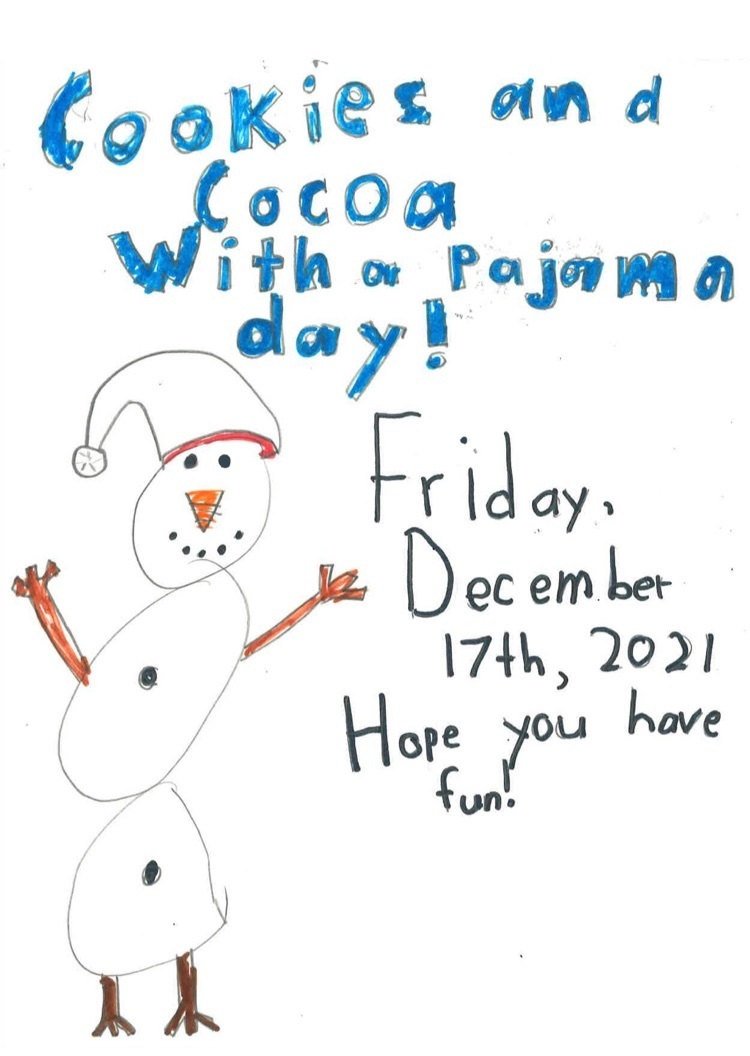 Cookies and
Cocoa
With a Pajama
day!
Friday,
December
17th, 2021
Hope you have
fun!